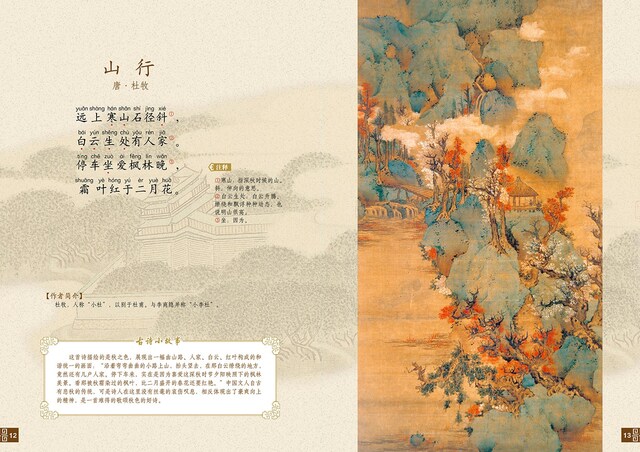 山行
唐·杜牧
yuǎn shàng hán shān shí jìng xié
远上寒山石径斜①,
bái yún shēng chù yǒu rén jiā
白云生处有人家②。
tíng chē zuò ài fēng lín wǎn
停车坐爱枫林晚③,
shuāng yè hóng yú èr yuè huā
霜叶红于二月花。
注释
①寒山:指深秋时候的山。
斜:伸向的意思。
②白云生处:白云升腾、
缭绕和飘浮种种动态,也
说明山很高。
③坐:因为。
【作者简介】
杜牧,人称“小杜”,以别于杜甫。与李商隐并称“小李杜”。
古诗小故事
这首诗描绘的是秋之色,展现出一幅由山路、人家、白云、红叶构成的和
谐统一的画面:“沿着弯弯曲曲的小路上山,抬头望去,在那白云缭绕的地方,
竟然还有几户人家。停下车来,实在是因为喜爱这深秋时节夕阳映照下的枫林
美景。看那被秋霜染过的枫叶,比二月盛开的春花还要红艳。”中国文人自古
有悲秋的传统,可是诗人在这里没有丝毫的哀伤叹息,相反体现出了豪爽向上
的精神,是一首难得的歌颂秋色的好诗。
12
13